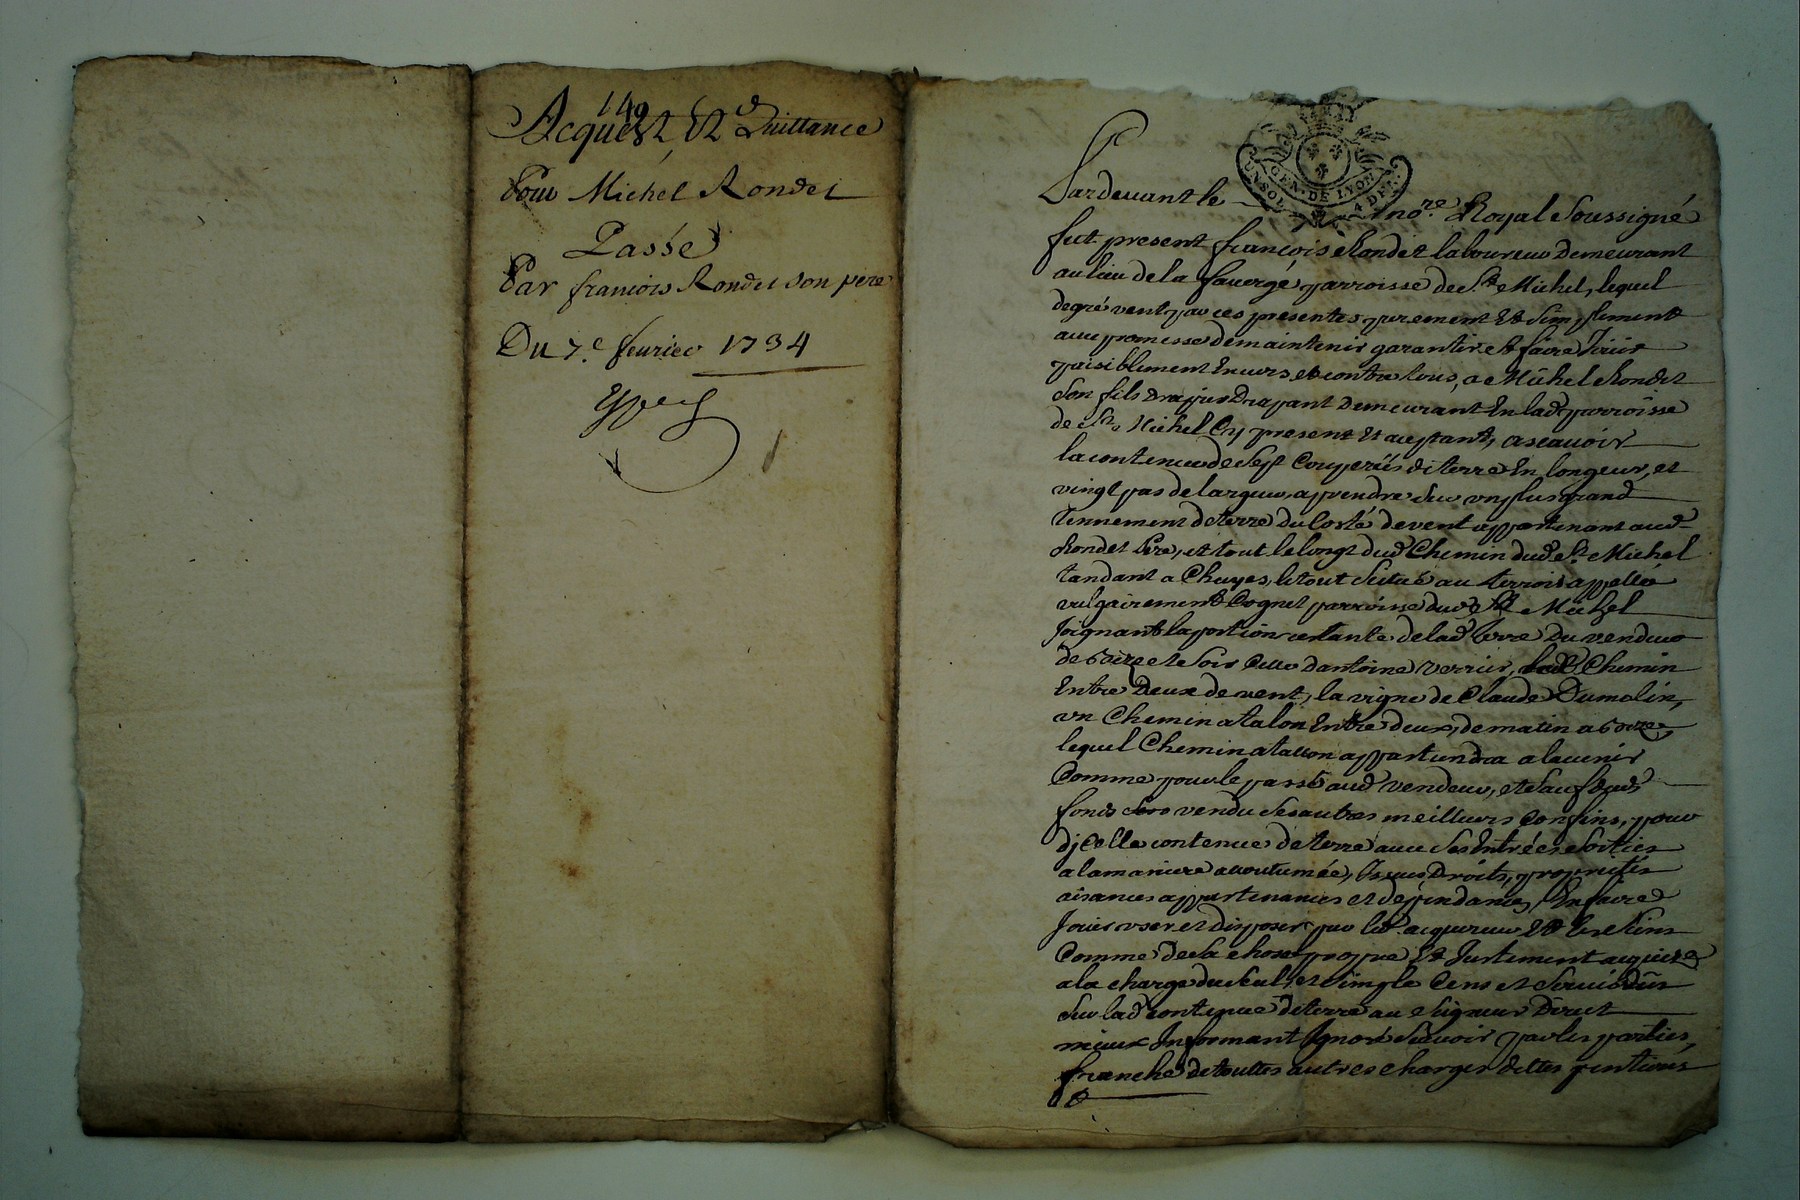 149
Acquest, Et Quittance
Pour Michel Rondet
Passé
Par francois Rondet son pere
Du 7.e feurier 1734
GEN. DE LYON
Pardeuant le no.re Royal Soussigné
fut present francois Rondet laboureur demeurant
au lieu de la fauerge parroisse de St Michel, lequel
de gré vent par ces presentes purement Et Simplement
auec promesse de maintenir garantir et faire Jouir
paisiblement Enuers et contre tous, a Michel Rondet
Son fils drapier drapant demeurant En lad parroisse
de St Michel Cy present Et aceptant, ascauoir
la contenue de Sept Couperées de terre En longeur, et
vingt pas de largeur, a prendre Sur vn plus grand
tennement de terre du Costé de vent appartenant aud
Rondet Pere, et tout le longt dud Chemin dud St Michel
tandant a Chuyes, le tout Situé au terroir appellé
vulgairement Cognet parroisse dud St Michel
Joignant la portion restante de lad terre du vendeur
de bize et Soir Celle dantoine Verrier, Chemin
Entre deux de vent, la vigne de Claude Dumolin,
vn Chemin a talon Entre deux, de matin a bize,
lequel Chemin a tallon appartiendra a lauenir
Comme pour le passé aud vendeur, et Sauf dud
fonds vendu Ses autres meilleurs Confins, pour
dJcelle contenue de terre auec Ses Entrées Sorties
a la maniere accoutumée, Issues Droits, proprietés
aisances appartenances et dependances, En faire
Jouir vser et disposer par led acquereur Et les Siens
Comme de Sa chose propre Et Justement acquise
a la charge du Seul, et Simple Cens et Seruis dûs
Sur lad contenue de terre au Seigneur Direct
mieux Informant Ignoré Scauoir par les parties,
franche de touttes autres charges dettes pentions